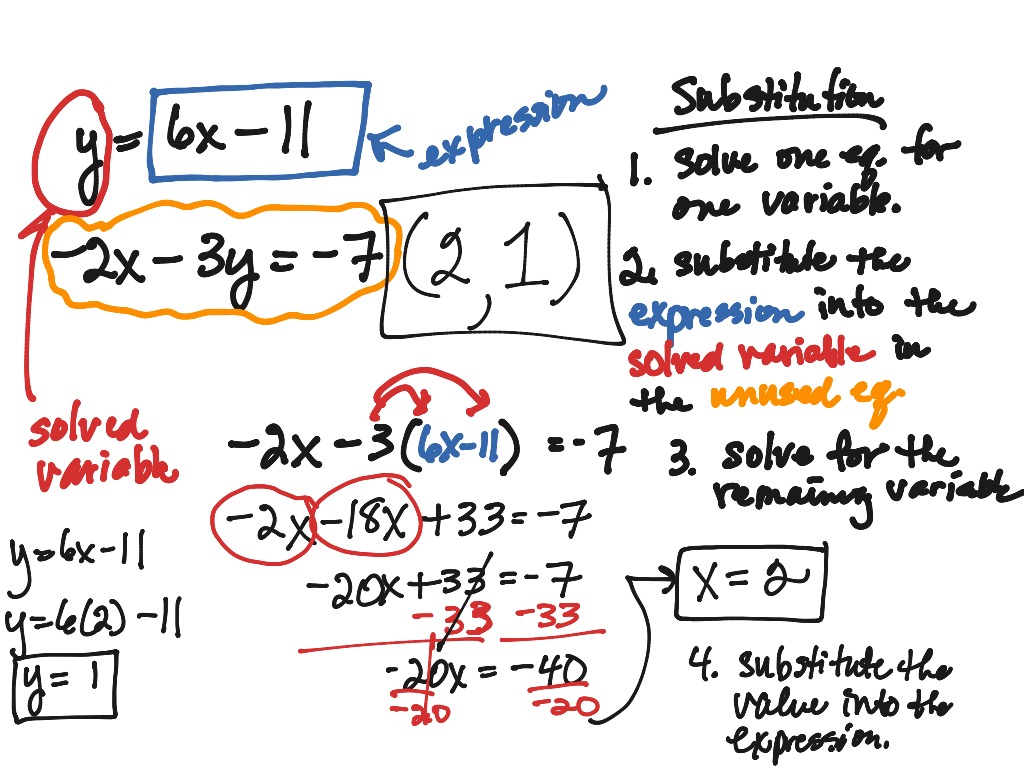 y = 6x - 11
expression
-2x - 3y = -7
(2, 1)
solved
variable
-2x - 3(6x-11) = -7
-2x -18x +33 = -7
-20x +33 = -7
-33 -33
-20x = -40
-20 -20
x = 2
y=6x-11
y=6(2)-11
y= 1
Substitution
1. solve one eq. for
one variable.
2. substitute the
expression into the
solved variable in
the unused eq.
3. solve for the
remaining variable
4. substitute the
value into the
expression.